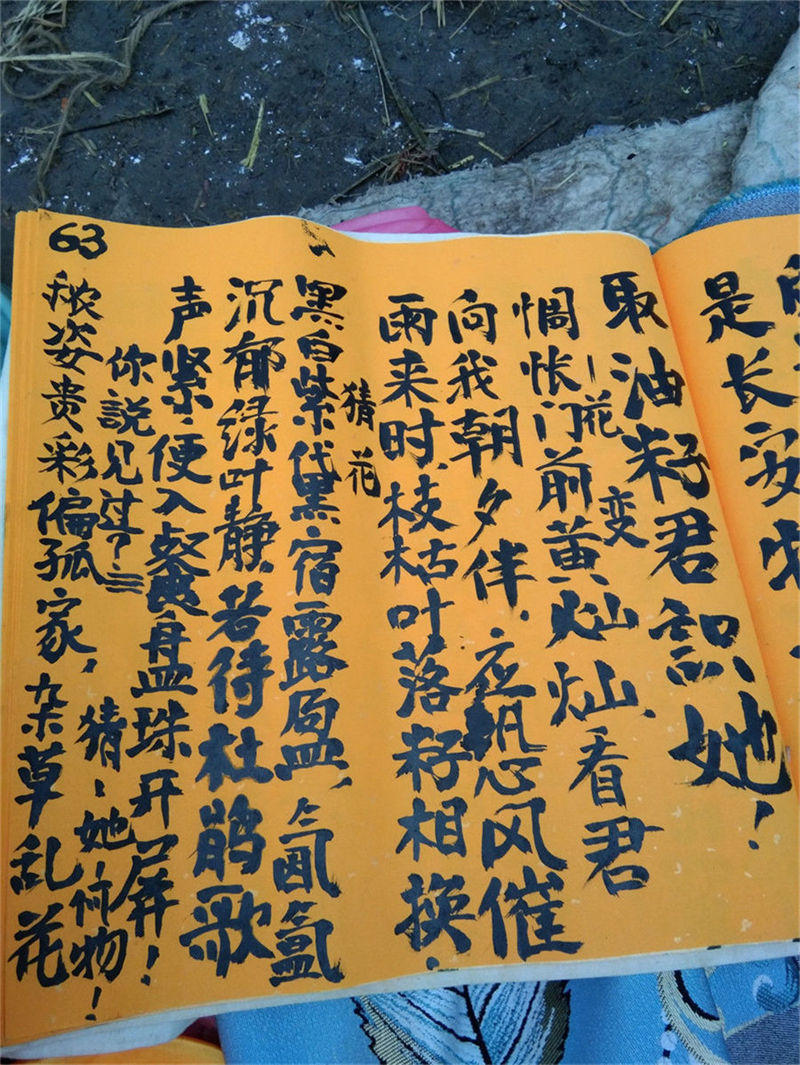 是长安
取油籽君識她！
花变
惆怅门前黄灿灿，看君
向我朝夕伴．应恐风催
雨来时．枝枯叶落籽相换！
猜花
黑白紫黛宿露，氤氲
沉郁绿叶静．若待杜鹃歌
声紧，便入餐盘珠开屏！
你説见过？猜、她何物！
63
秾姿贵彩偏孤家，杂草乱花